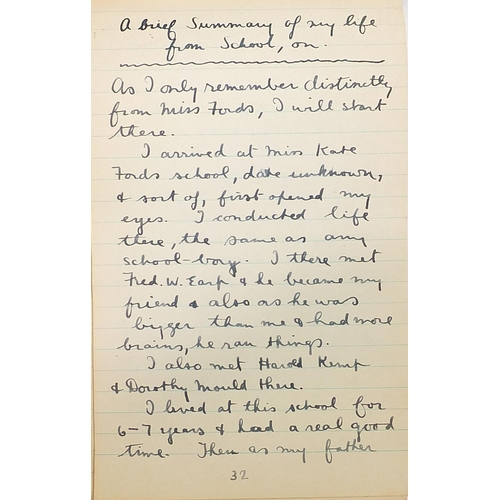 A brief Summary of my life
from School, on.
As I only remember distinctly
from Miss Fords, I will start
there.
I arrived at Miss Kate
Fords school, date unknown,
& sort of, first opened my
eyes. I conducted life
there, the same as any
school-boy. I there met
Fred. W. Earp & he became my
friend & also as he was
bigger than me & had more
brains, he ran things.
I also met Harold Kemp
& Dorothy Mould there.
I lived at this school for
6-7 years & had a real good
time. Then as my father
32